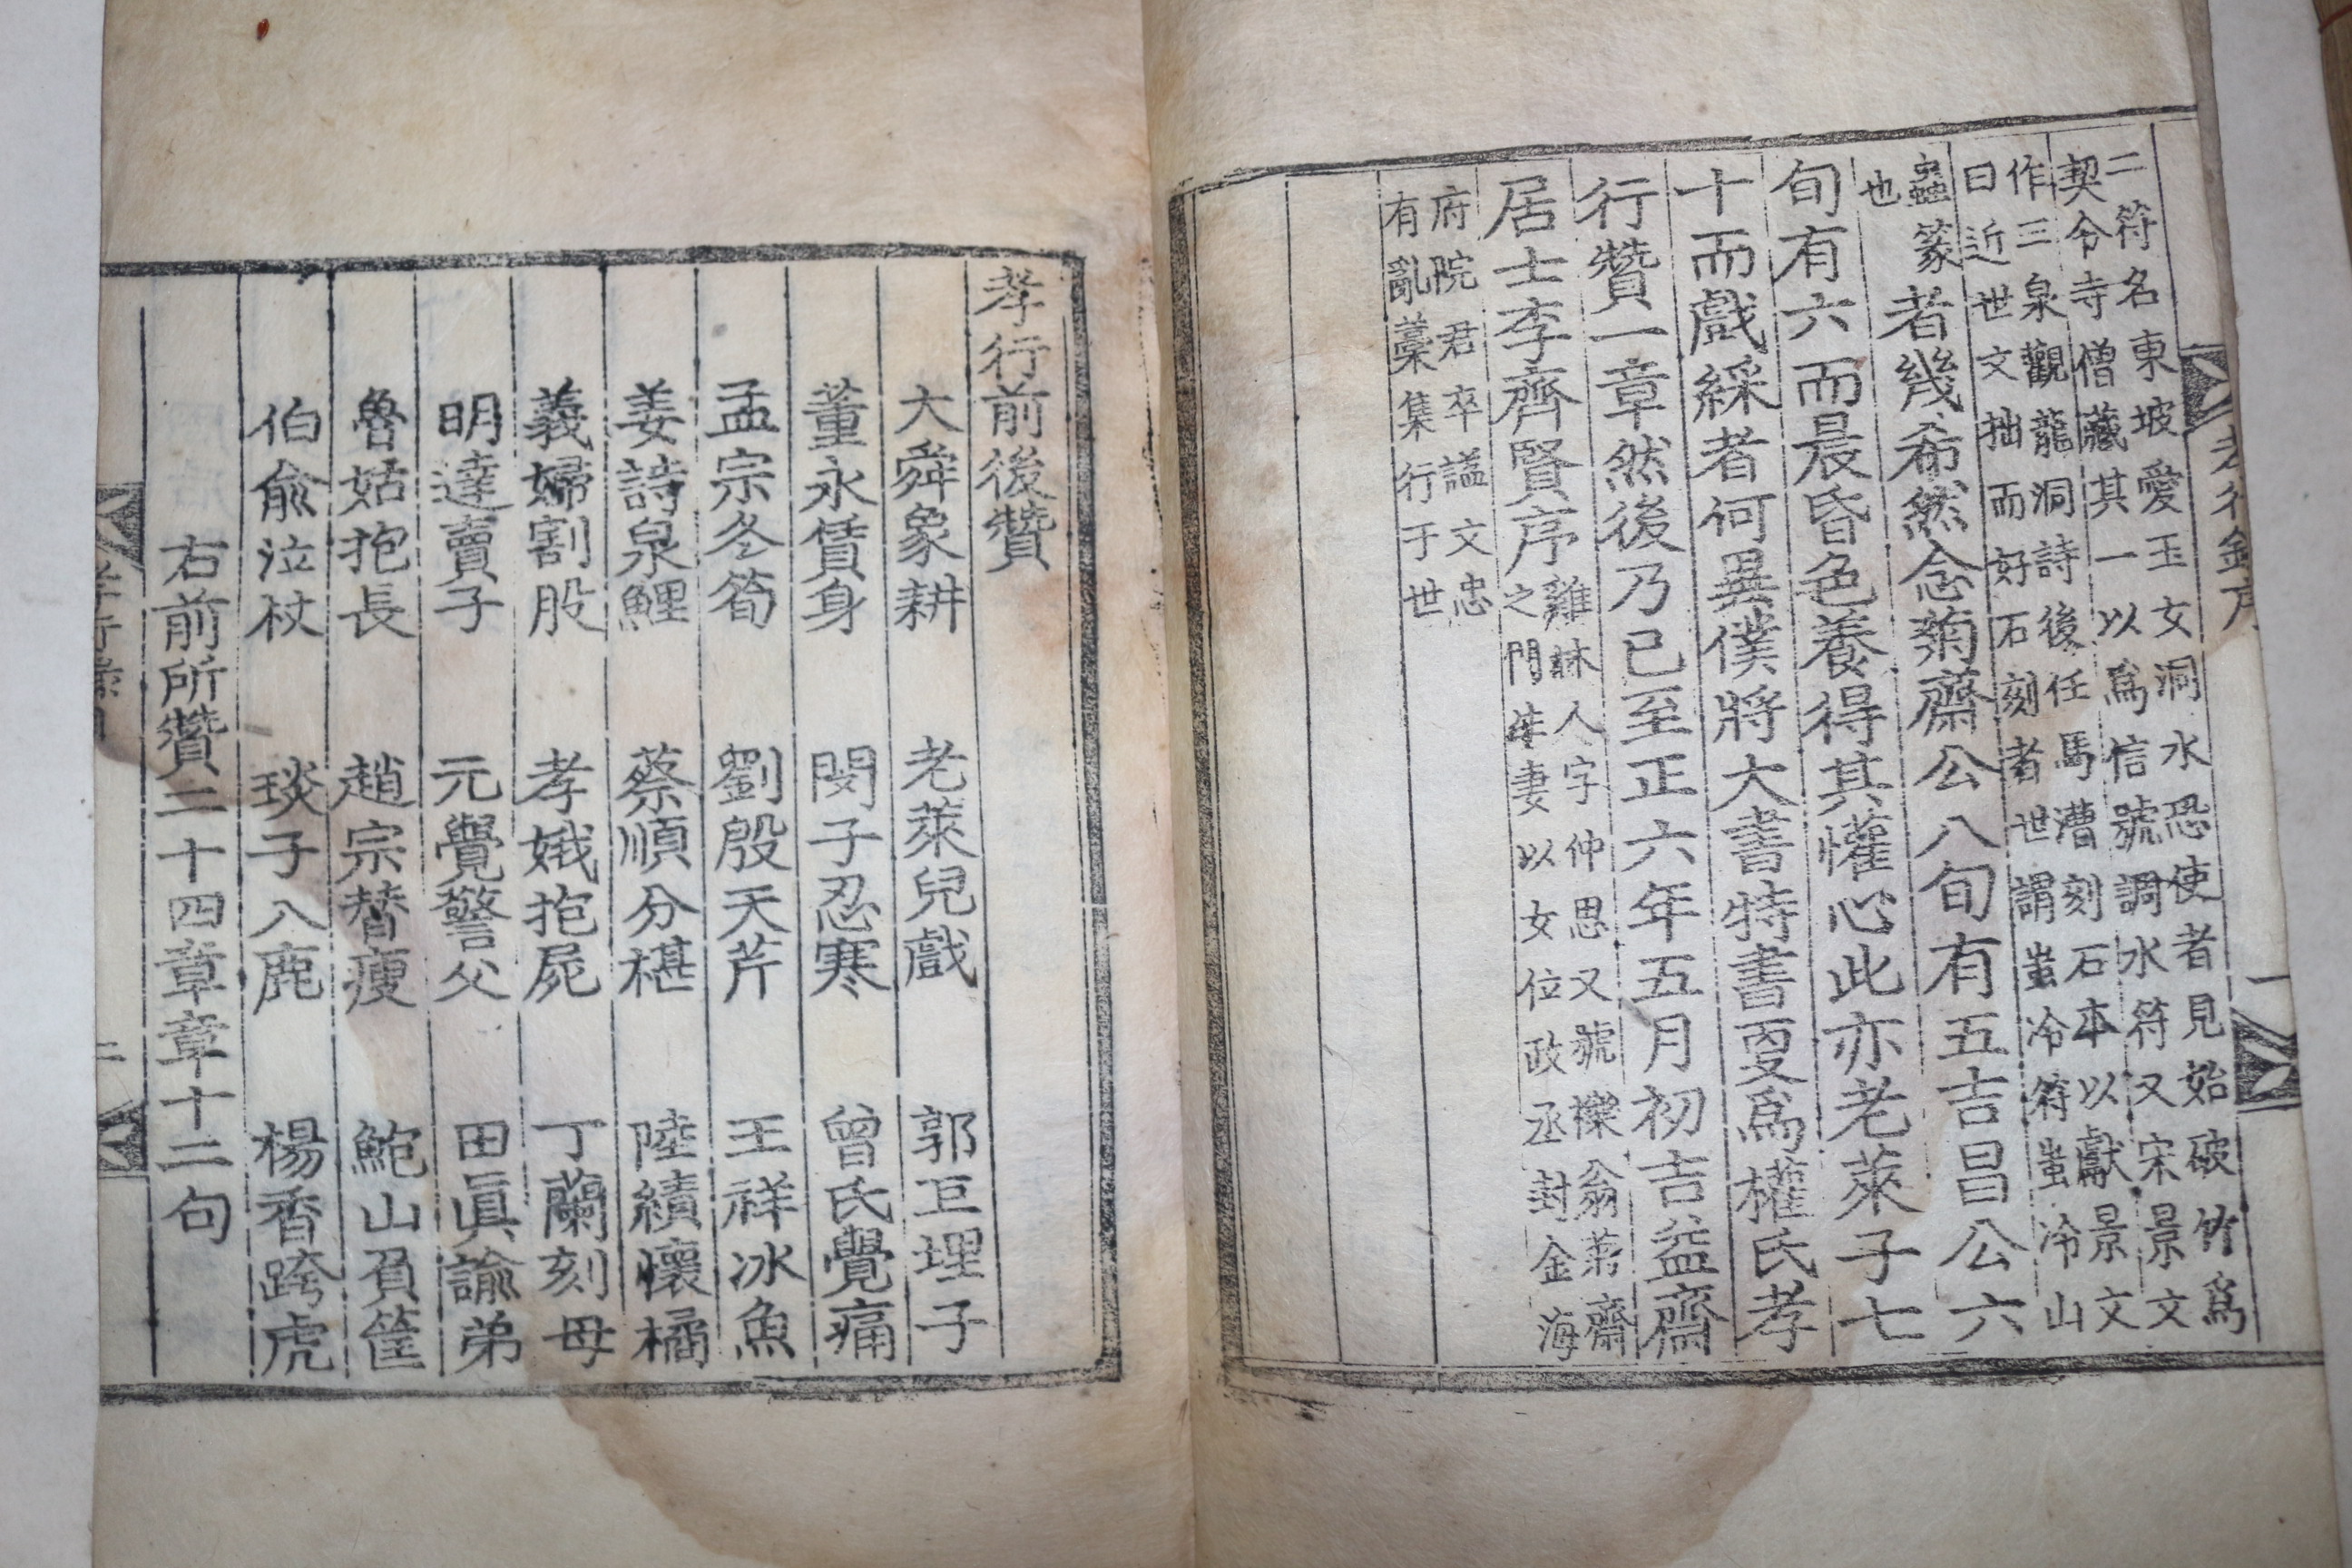 二符名東坡愛玉女洞水恐使者見始破竹爲
契令寺僧藏其一以爲信號調水符又宋景文
作三泉觀龍洞詩後任馬漕刻石本以獻景文
曰近世文拙而好石刻者世謂蚩冷符蚩冷山
蟲篆
也
者幾希然念菊齋公八旬有五吉昌公六
旬有六而晨昏色養得其懽心此亦老萊子七
十而戲綵者何異僕將大書特書更爲權氏孝
行贊一章然後乃已至正六年五月初吉益齋
居士李齊賢序
雞林人字仲思又號櫟翁菊齋
之門生妻以女位政丞封金海
府院君卒謚文忠
有亂藁集行于世
孝行前後贊
大舜象耕 老萊兒戲 郭巨埋子
董永賃身 閔子忍寒 曾氏覺痛
孟宗冬筍 劉殷天芹 王祥冰魚
姜詩泉鯉 蔡順分椹 陸績懷橘
義婦割股 孝娥抱屍 丁蘭刻母
明達賣子 元覺警父 田眞諭弟
魯姑抱長 趙宗替瘦 鮑山負筐
伯兪泣杖 琰子入鹿 楊香跨虎
右前所贊二十四章章十二句